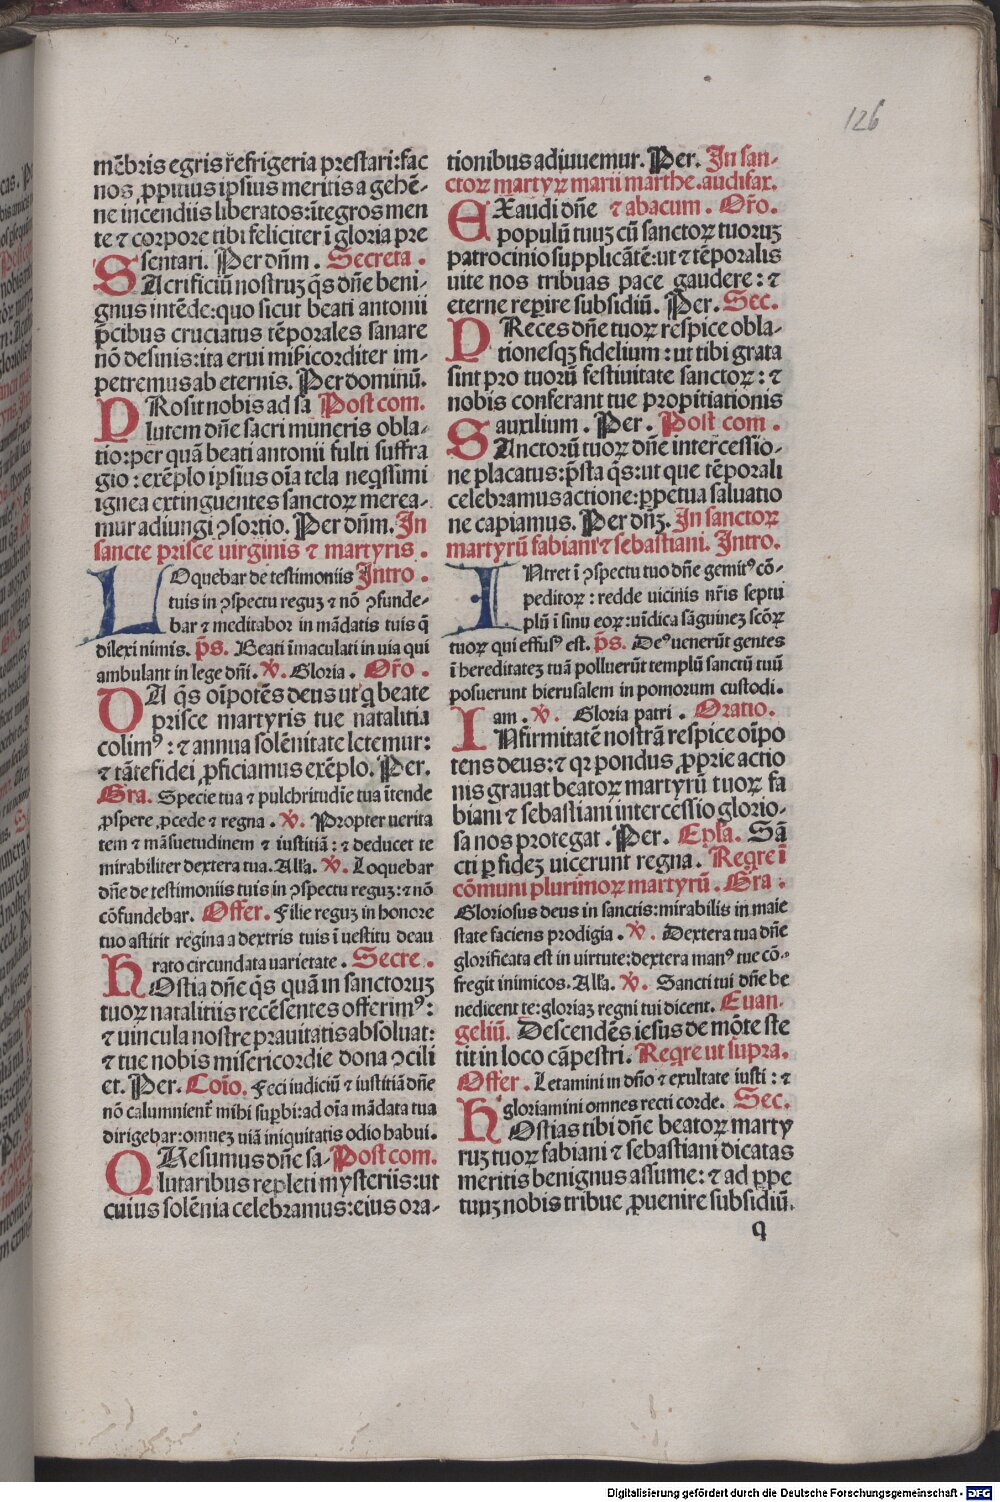 126
mēbris egris refrigeria prestari:fac
nos ꝓpitius ipsius meritis a gehē-
ne incendiis liberatos:ītegros men
te ⁊ corpore tibi feliciter ī gloria pre
sentari. Per dn̄m. Secreta.
SAcrificiū nostruꝫ q̄s dn̄e beni-
gnus intēde:quo sicut beati antonii
p̄cibus cruciatus tēporales sanare
nō desinis:ita erui mīsicorditer im-
petremus ab eternis. Per dominū.
PRosit nobis ad sa Post com.
lutem dn̄e sacri muneris obla-
tio:per quā beati antonii fulti suffra
gio:exēplo ipsius oīa tela neq̄ssimi
ignea extinguentes sanctoꝝ merea-
mur adiungi ꝯsortio. Per dn̄m. In
sancte prisce virginis ⁊ martyris.
LOquebar de testimoniis Intro.
tuis in ꝯspectu reguꝫ ⁊ nō ꝯfunde-
bar ⁊ meditabor in mādatis tuis q̄
dilexi nimis. p̄s. Beati īmaculati in via qui
ambulant in lege dn̄i. ℣. Gloria. Or̄o.
DA q̄s oīpotēs deus ut q beate
prisce martyris tue natalitia
colimꝰ:⁊ annua solēnitate letemur:
⁊ tāte fidei ꝓficiamus exēplo. Per.
Gra. Specie tua ⁊ pulchritudīe tua ītende
ꝓspere ꝓcede ⁊ regna. ℣. Propter verita
tem ⁊ māsuetudinem ⁊ iustitiā:⁊ deducet te
mirabiliter dextera tua. All'a. ℣. Loquebar
dn̄e de testimoniis tuis in ꝯspectu reguꝫ:⁊ nō
cōfundebar. Offer. Filie reguꝫ in honore
tuo astitit regina a dextris tuis ī vestitu deau
rato circundata varietate. Secre.
HOstia dn̄e q̄s quā in sanctoruꝫ
tuoꝝ natalitiis recēsentes offerimꝰ:
⁊ vincula nostre prauitatis absoluat:
⁊ tue nobis misericordie dona ꝯcili
et. Per. Coīo. Feci iudiciū ⁊ iustitiā dn̄e
nō calumnient̄ mihi sup̄bi:ad oīa mādata tua
dirigebar:omneꝫ viā iniquitatis odio habui.
QUesumus dn̄e sa- Post com.
lutaribus repleti mysteriis:ut
cuius solēnia celebramus:eius ora-
tionibus adiuuemur. Per. In san-
ctoꝝ martyꝝ marii marthe.audifax.
EXaudi dn̄e ⁊ abacum. Or̄o.
populū tuuꝫ cū sanctoꝝ tuoruꝫ
patrocinio supplicātē:ut ⁊ tēporalis
vite nos tribuas pace gaudere:⁊
eterne reperire subsidiū. Per. Sec.
PReces dn̄e tuoꝝ respice obla-
tionesqꝫ fidelium:ut tibi grata
sint pro tuorū festiuitate sanctoꝝ:⁊
nobis conferant tue propitiationis
auxilium. Per. Post com.
SAnctorū tuoꝝ dn̄e intercessio-
ne placatus:p̄sta q̄s:ut que tēporali
celebramus actione:ꝑpetua saluatio
ne capiamus. Per dn̄ꝫ. In sanctoꝝ
martyrū fabiani ⁊ sebastiani. Intro.
INtret ī ꝯspectu tuo dn̄e gemitꝰ cō-
peditoꝝ:redde vicinis nr̄is septu
plū ī sinu eoꝝ:vīdica sāguineꝫ sc̄oꝝ
tuoꝝ qui effusꝰ est. p̄s. Deꝰ venerūt gentes
ī hereditateꝫ tuā polluerūt templū sanctū tuū
posuerunt hierusalem in pomorum custodi.
am. ℣. Gloria patri. Oratio.
INfirmitatē nostrā respice oīpo
tens deus:⁊ qꝛ pondus ꝓprie actio
nis grauat beatoꝝ martyrū tuoꝝ fa
biani ⁊ sebastiani intercessio glorio-
sa nos protegat. Per. Ep̄la. Sā
cti ꝑ fideꝫ vicerunt regna. Reqre ī
cōmuni plurimoꝝ martyrū. Gra:
Gloriosus deus in sanctis:mirabilis in maie
state faciens prodigia. ℣. Dextera tua dn̄e
glorificata est in virtute:dextera manꝰ tue cō-
fregit inimicos. All'a. ℣. Sancti tui dn̄e be
nedicent te:gloriaꝫ regni tui dicent. Euan-
geliū. Descendēs iesus de mōte ste
tit in loco cāpestri. Reqre ut supra.
Offer. Letamini in dn̄o ⁊ exultate iusti:⁊
gloriamini omnes recti corde. Sec.
HOstias tibi dn̄e beatoꝝ marty
ruꝫ tuoꝝ fabiani ⁊ sebastiani dicatas
meritis benignus assume:⁊ ad ꝑpe
tuuꝫ nobis tribue ꝓuenire subsidiū.
q
Digitalisierung gefördert durch die Deutsche Forschungsgemeinschaft - DFG